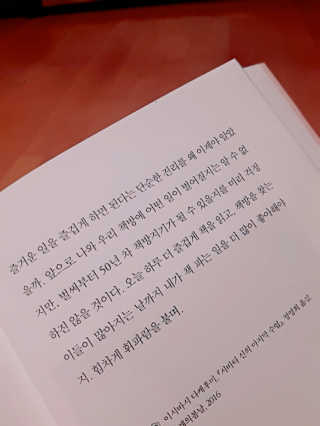 즐거운 일을 즐겁게 하면 된다는 단순한 진리를 왜 이제야 알았
을까. 앞으로 나와 우리 책방에 어떤 일이 벌어질지는 알 수 없
지만, 벌써부터 50년 차 책방지기가 될 수 있을지를 미리 걱정
하진 않을 것이다. 오늘 하루 더 즐겁게 책을 읽고, 책방을 찾는
이들이 많아지는 날까지 내가 책 파는 일을 더 많이 좋아해야
지. 힘차게 휘파람을 불며.
이시바시 다케후미, 『시바타 신의 마지막 수업』, 정영희 옮김
2016